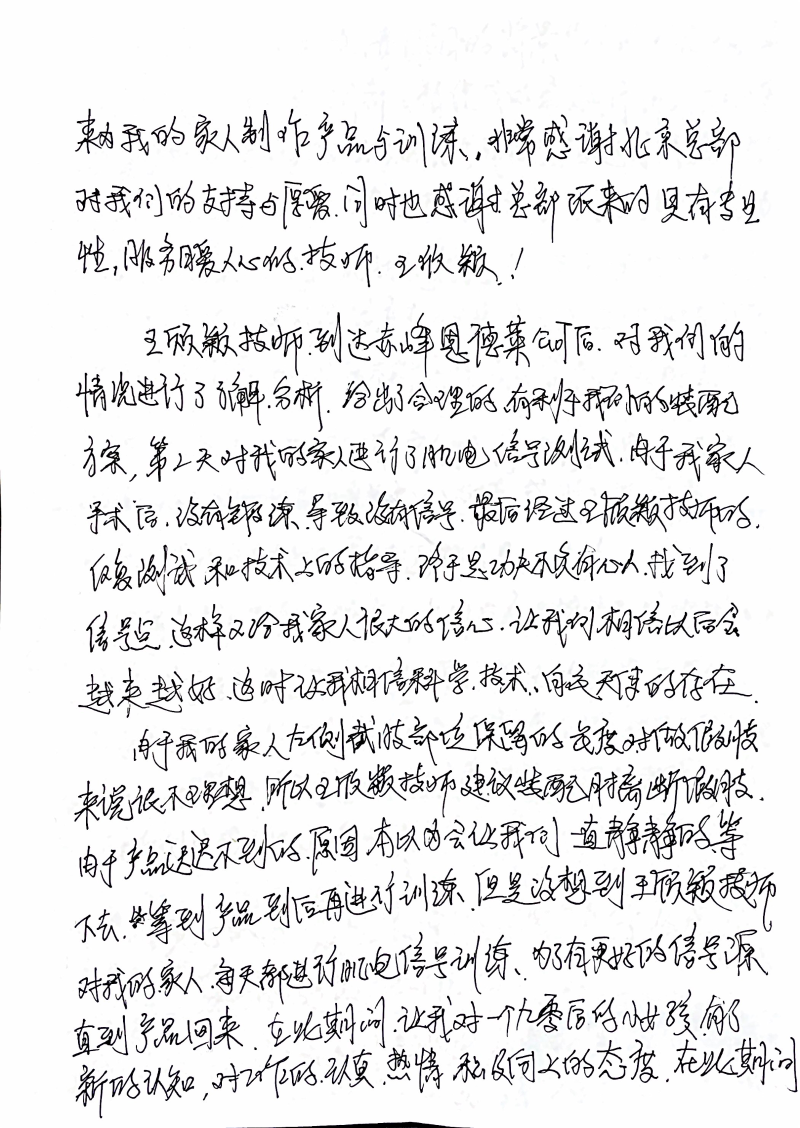 来为我的家人制作产品与训练,非常感谢北京总部
对我们的支持与厚爱.同时也感谢总部派来的具有专业
性,服务暖人心的.技师.王欣颖!
王欣颖技师.到达赤峰恩德莱公司后.对我们的
情况进行了了解.分析.给出了合理的.有利于我们的装配
方案,第2天对我的家人进行了肌电信号测试.由于我家人
手术后.没有锻练.导致没有信号.最后经过王欣颖技师的.
反复测试.和技术上的指导.终于是功夫不负有心人.找到了
信号点.这样又给我家人很大的信心.让我们相信以后会
越来越好.这时让我相信科学.技术.
由于我的家人左侧截肢部位保留的长度对做假肢
来说很不理想.所以王欣颖技师建议装配肘离断假肢.
由于产品迟迟不到的.原因.本以为会让我们一直静静的等
下去.等到产品到后再进行训练.但是没想到王欣颖技师
对我的家人.每天都进行肌电信号训练、为了有更好的信号源
直到产品回来.在此期间.让我对一个九零后的小女孩.有了
新的认知,对工作的.认真.热情.积极向上的态度.在此期间